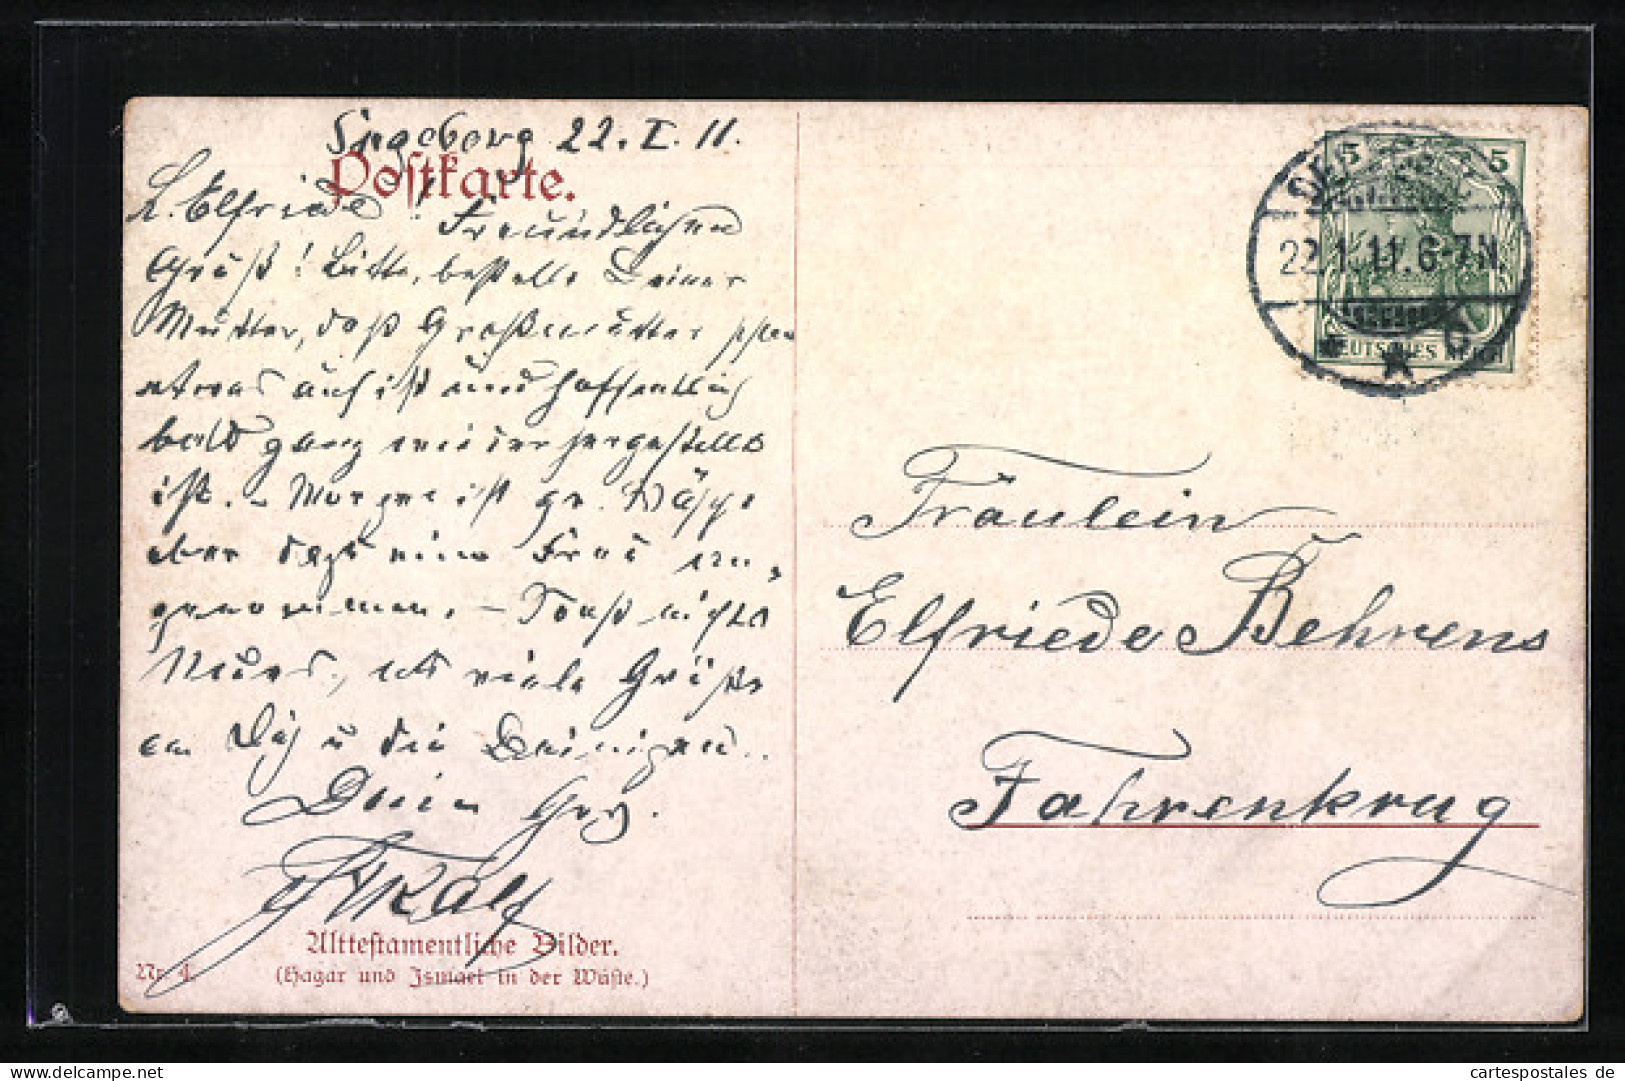 Segeberg 22.I.11.
Postkarte.
L. Elfriede! Freundlichen
Gruß! Bitte, bestelle Deiner
Mutter, daß Großmutter schon
etwas auf ist und hoffentlich
bald ganz wieder hergestellt
ist. – Morgen ist gr. Wäsche
aber dazu eine Frau an-
genommen. – Sonst nichts
Neues, als viele Grüße
an Dich u die Deinigen.
Dein
Alttestamentliche Bilder.
Nr. 4. (Hagar und Ismael in der Wüste.)
5 5
22.1.11.6-7N.
DEUTSCHES REICH
Fräulein
Elfriede Behrens
Fahrenkrug
cartespostales de